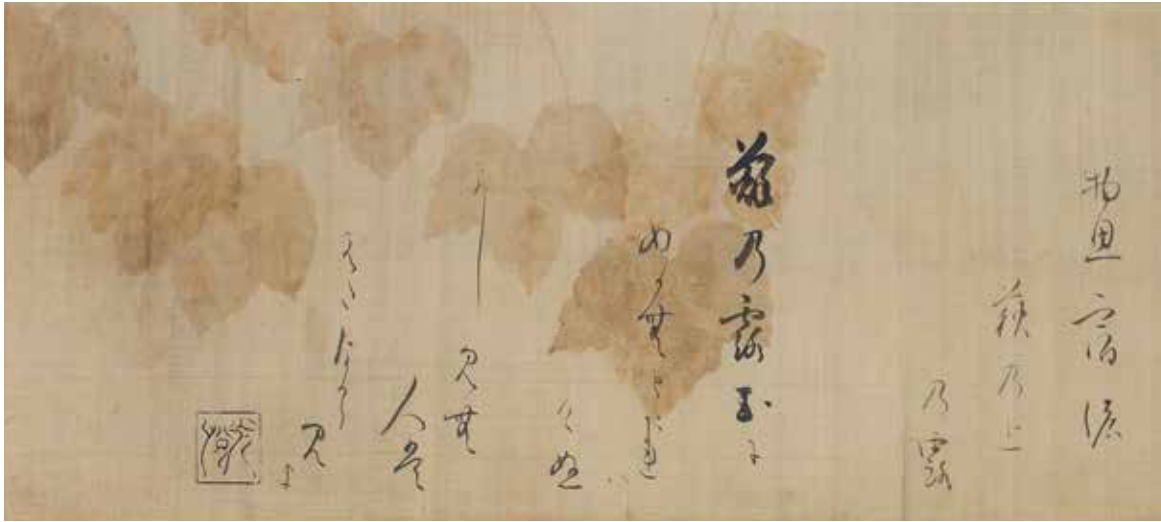 物思宿濃
萩乃上
乃露
萩乃露玉に
ぬか無ととれ
ハけぬ
よし見無
人は
えたなから
見よ